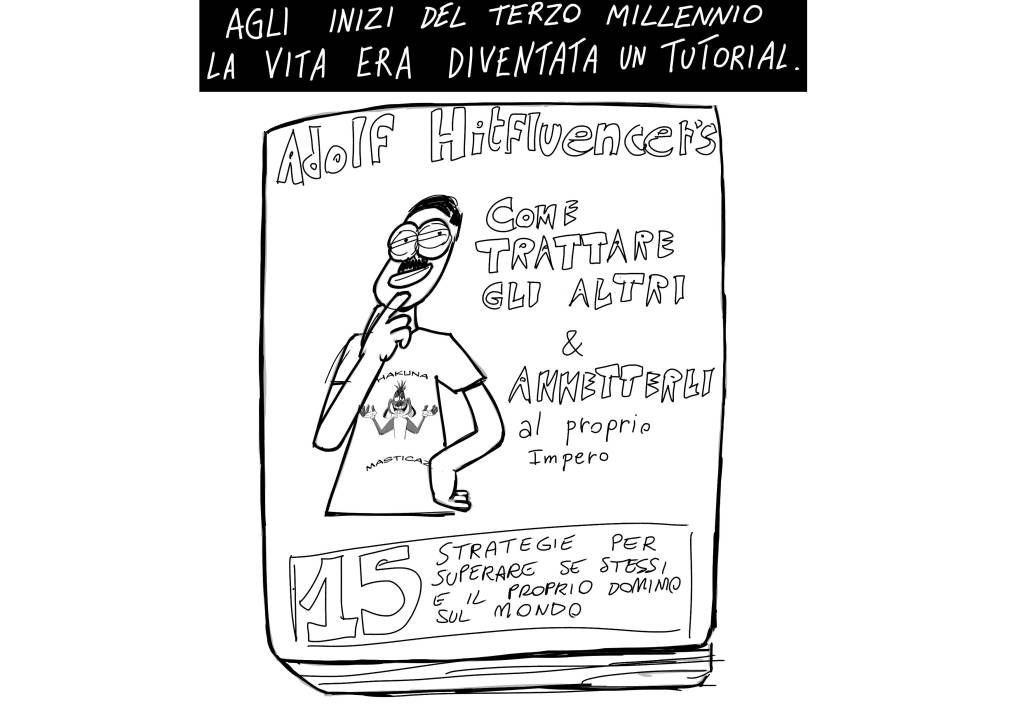 AGLI INIZI DEL TERZO MILLENNIO
LA VITA ERA DIVENTATA UN TUTORIAL.
Adolf Hitfluencer's
COME
TRATTARE
GLI ALTRI
&
ANNETTERLI
al proprio
Impero
HAKUNA
MASTICAZ
15
STRATEGIE PER
SUPERARE SE STESSI
E IL PROPRIO DOMINIO
SUL MONDO